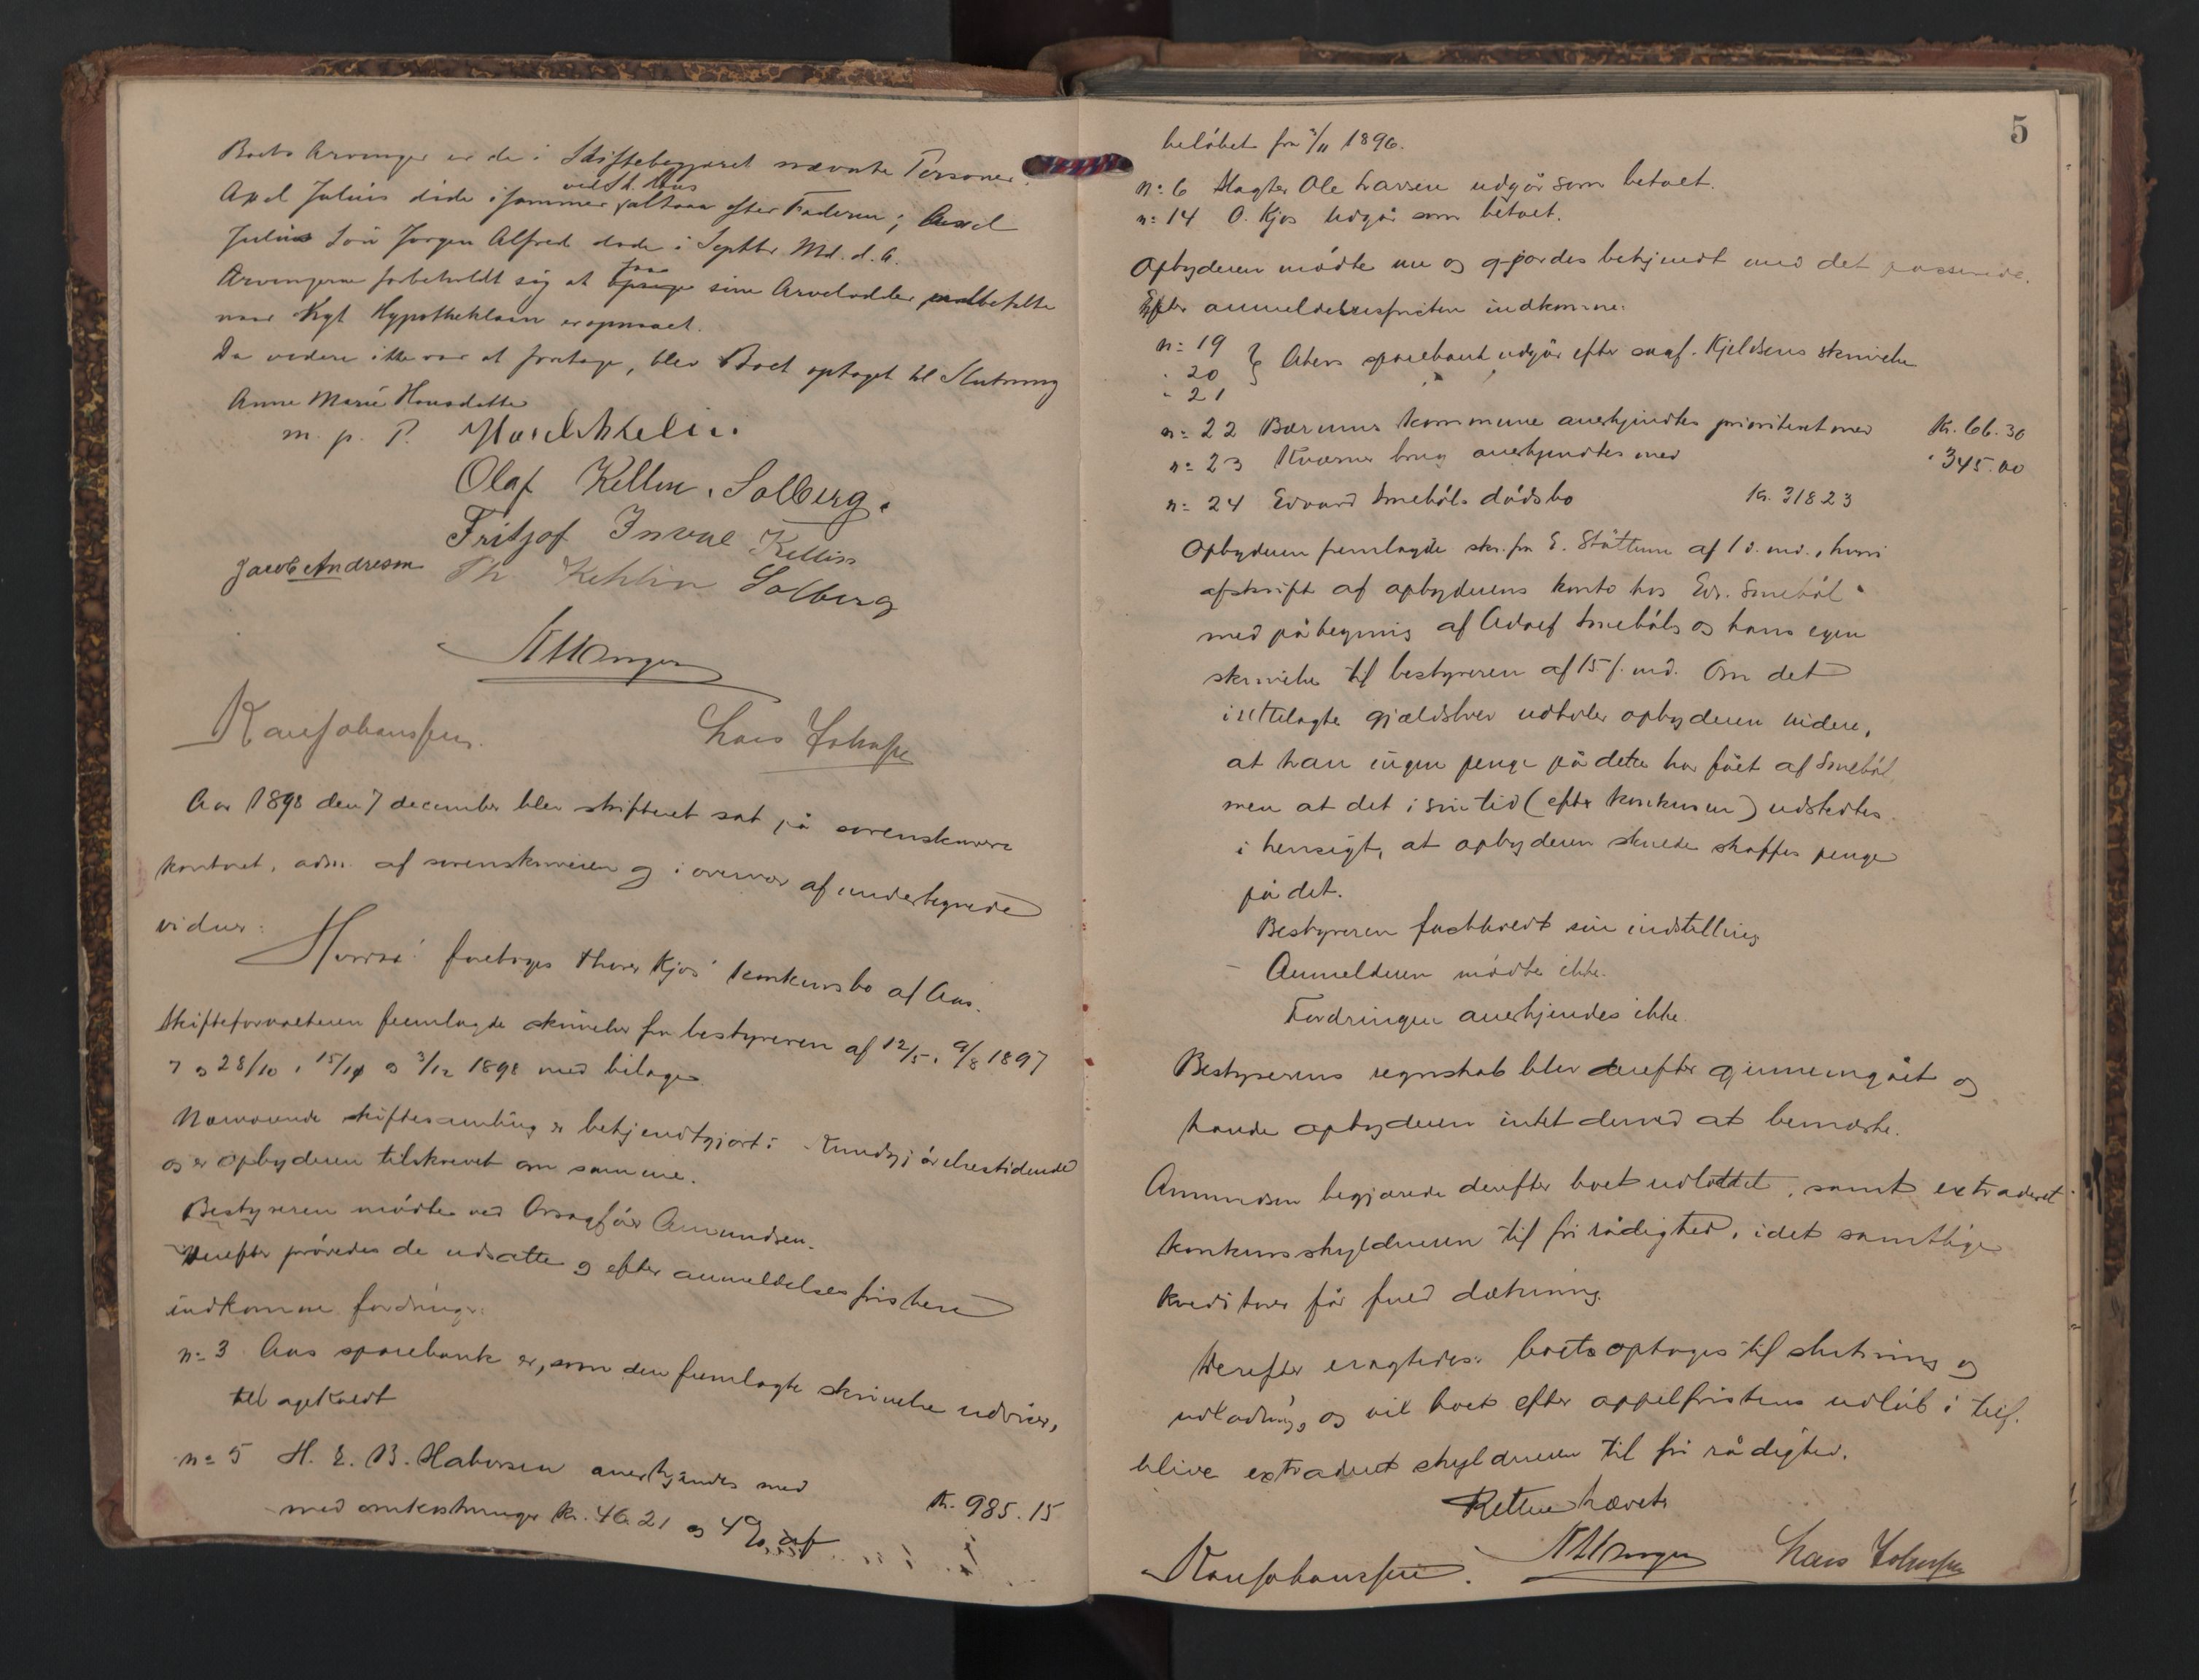 Boets Arvinger er de i Skiftebegjæret nævnte Personer.
Axel Julius døde i sommer faa Aar efter Faderen; Axel
Julius Søn Jørgen Alfred døde i Septbr Md. d. A.
Arvingerne forbeholdt sig at faa sine Arvelodder udbetalte
naar Kgl Hypotheklaan er opnaaet.
Da videre ikke var at foretage, blev Boet optaget til Slutning
Anne Marie Hansdatter
m. p. P.
Olaf Kellin. Solberg.
Fritjof Kellin
Jacob Andresen Th Kehlin Solberg
Lars Johnsen
Aar 1898 den 7 december blev skifteret sat på sorenskriver
kontoret, adm. af sorenskriveren og i overvær af undertegnede
vidner:
Hvorda: foretoges Thorer Kjos' konkursbo af Aas.
Skifteforvalteren fremlagde skrivelser fra bestyreren af 12/5, 9/8 1897
7 og 28/10, 15/11 og 3/12 1898 med bilage.
Nærværende skiftesamling er bekjendtgjort i Kundgjørelsestidende
og er opbyderen tilskrevet om samme.
Bestyreren mødte ved Orsagfør Amundsen.
Derefter prøvedes de udsatte og efter anmeldelsesfristens
indkomne fordringer:
no 3 Aas sparebank er, som den fremlagte skrivelse udviser,
tilbagekaldt
no 5 H. E. B. Halvorsen anerkjendes med
med omkostninger kr. 46.21 og 4% af Kr. 985.15
5
beløbet fra 3/11 1896.
no 6 Slagter Ole Larsen udgår som betalt.
no 14 O. Kjos udgår som betalt.
Opbyderen mødte nu og gjordes bekjendt med det passerede.
Efter anmeldelsesfristen indkomne:
no 19
" 20 } Akers sparebank udgår efter saaf. Kjeldsens skrivelse
" 21
no 22 Bærums kommune anerkjendtes prioriteret med Kr. 66.30
no 23 Kværner brug anerkjendtes med " 345.00
no 24 Edvard Smebøls dødsbo Kr. 318 23
Opbyderen fremlagde skr. fra E. Støttum af 1 d. md., hvori
afskrift af opbyderens konto hos Edv. Smebøl
med påtegning af Adolf Smebøls og hans egen
skrivelse til bestyreren af 15 f. md. Om det
fremlagte gjældsbrev udtaler opbyderen videre,
at han ingen penge på dette har fået af Smebøl
men at det i sin tid (efter konkursen) udstedtes
i hensigt, at opbyderen skulde skaffes penge
på det.
Bestyreren fastholdt sin indstilling
- Anmelderen mødte ikke.
Fordringen anerkjendes ikke.
Bestyrerens regnskab blev derefter gjennemgået og
havde opbyderen intet derved at bemærke.
Amundsen begjærede derefter boet udloddet, samt extraderet
konkursskyldneren til fri rådighed, idet samtlige
kreditorer får fuld dækning.
Derefter eragtedes: boets optages til slutning og
udlodning, og vil boet efter appelfristens udløb i tilf.
blive extraderet skyldneren til fri rådighed.
Retten hævet
Lars Johnsen